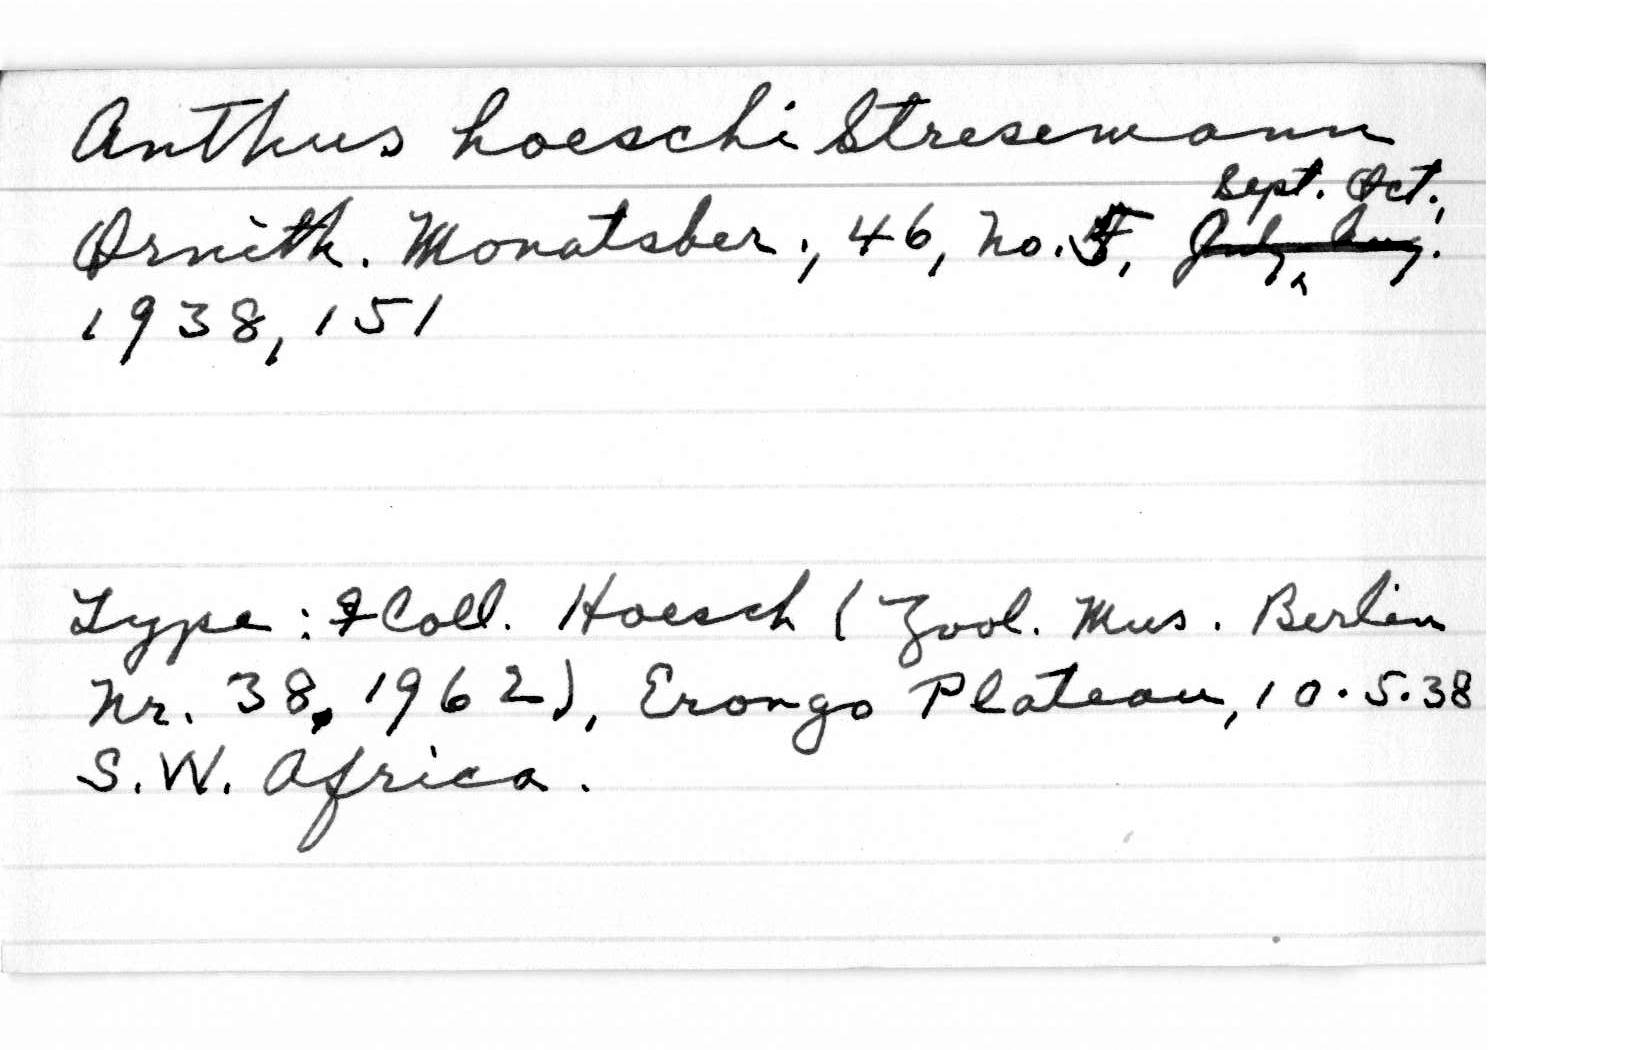 Anthus hoeschi Stresemann
Sept. Oct.,
Ornith. Monatsber., 46, no. 5, July, Aug.
1938, 151
Type: ♀ Coll. Hoesch (Zool. Mus. Berlin
Nr. 38, 1962), Erongo Plateau, 10.5.38
S.W. Africa.